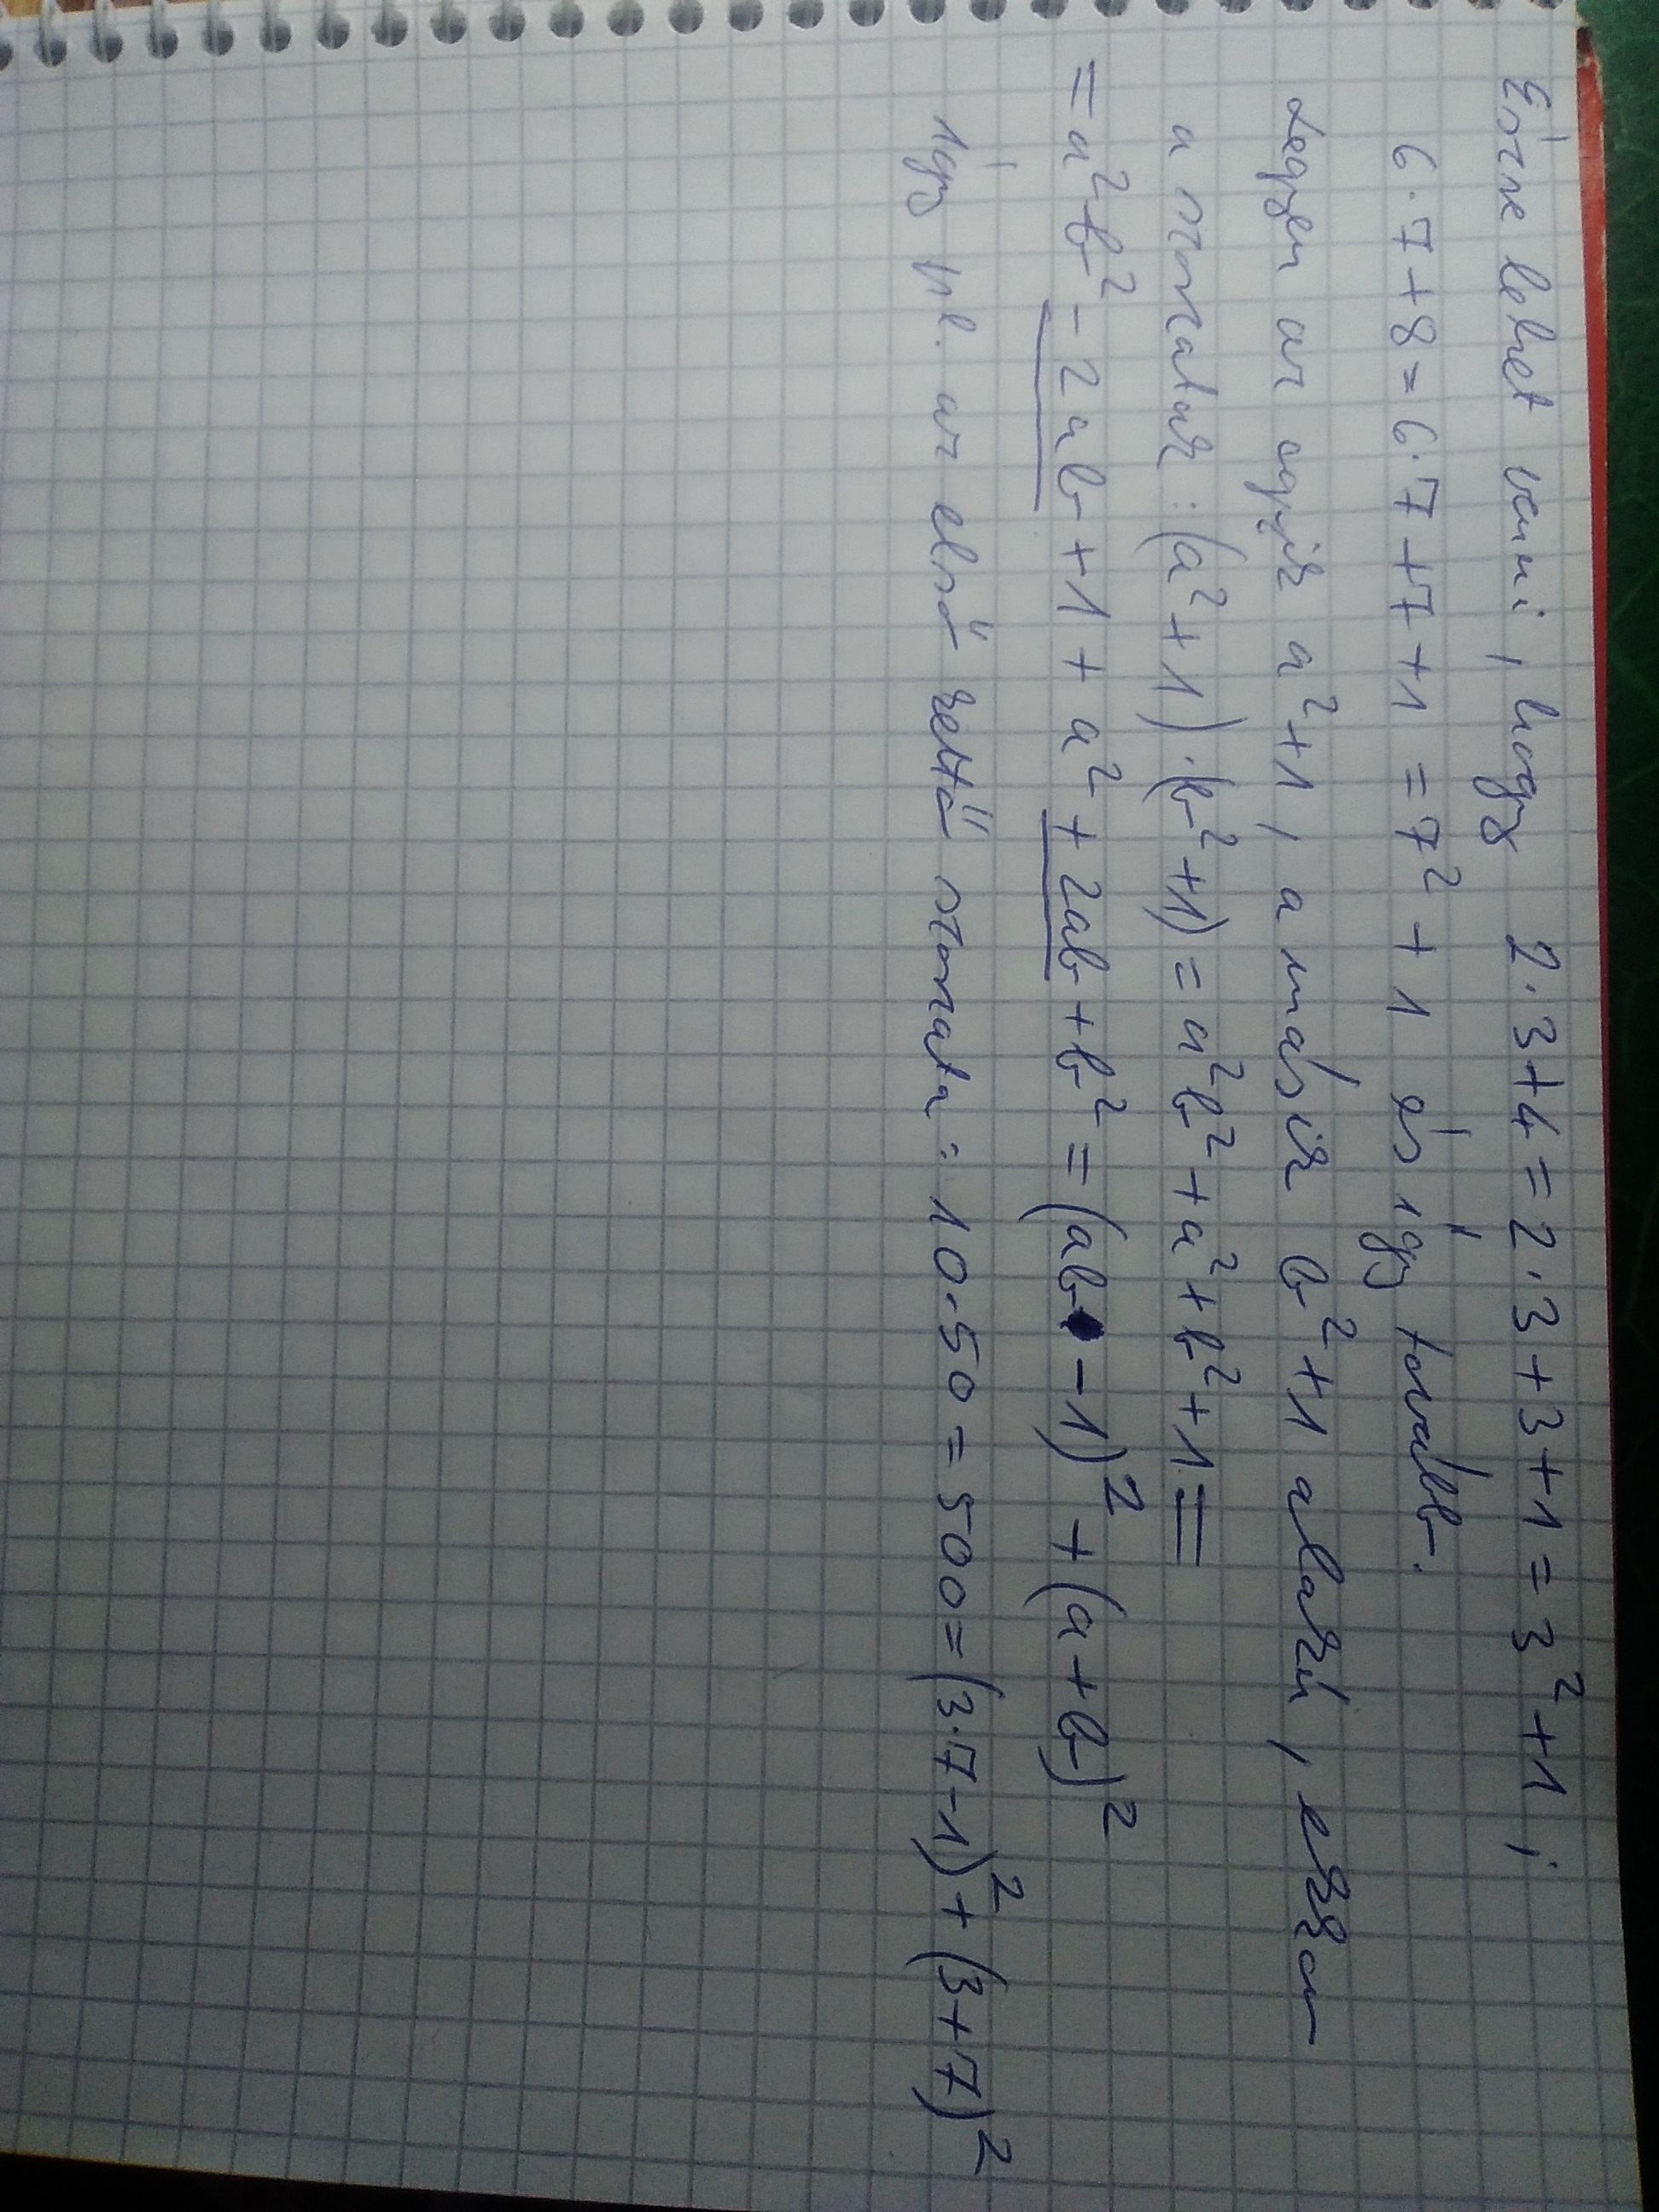 Észre lehet venni, hogy 2·3+4=2·3+3+1=3²+1;
6·7+8=6·7+7+1=7²+1 és így tovább.
Legyen az egyik a²+1, a másik b²+1 alakú, ekkor
a szorzatuk: (a²+1)·(b²+1)=a²b²+a²+b²+1=
=a²b²-2ab+1+a²+2ab+b²=(ab-1)²+(a+b)²
Így pl. az első kettő szorzata: 10·50=500=(3·7-1)²+(3+7)²